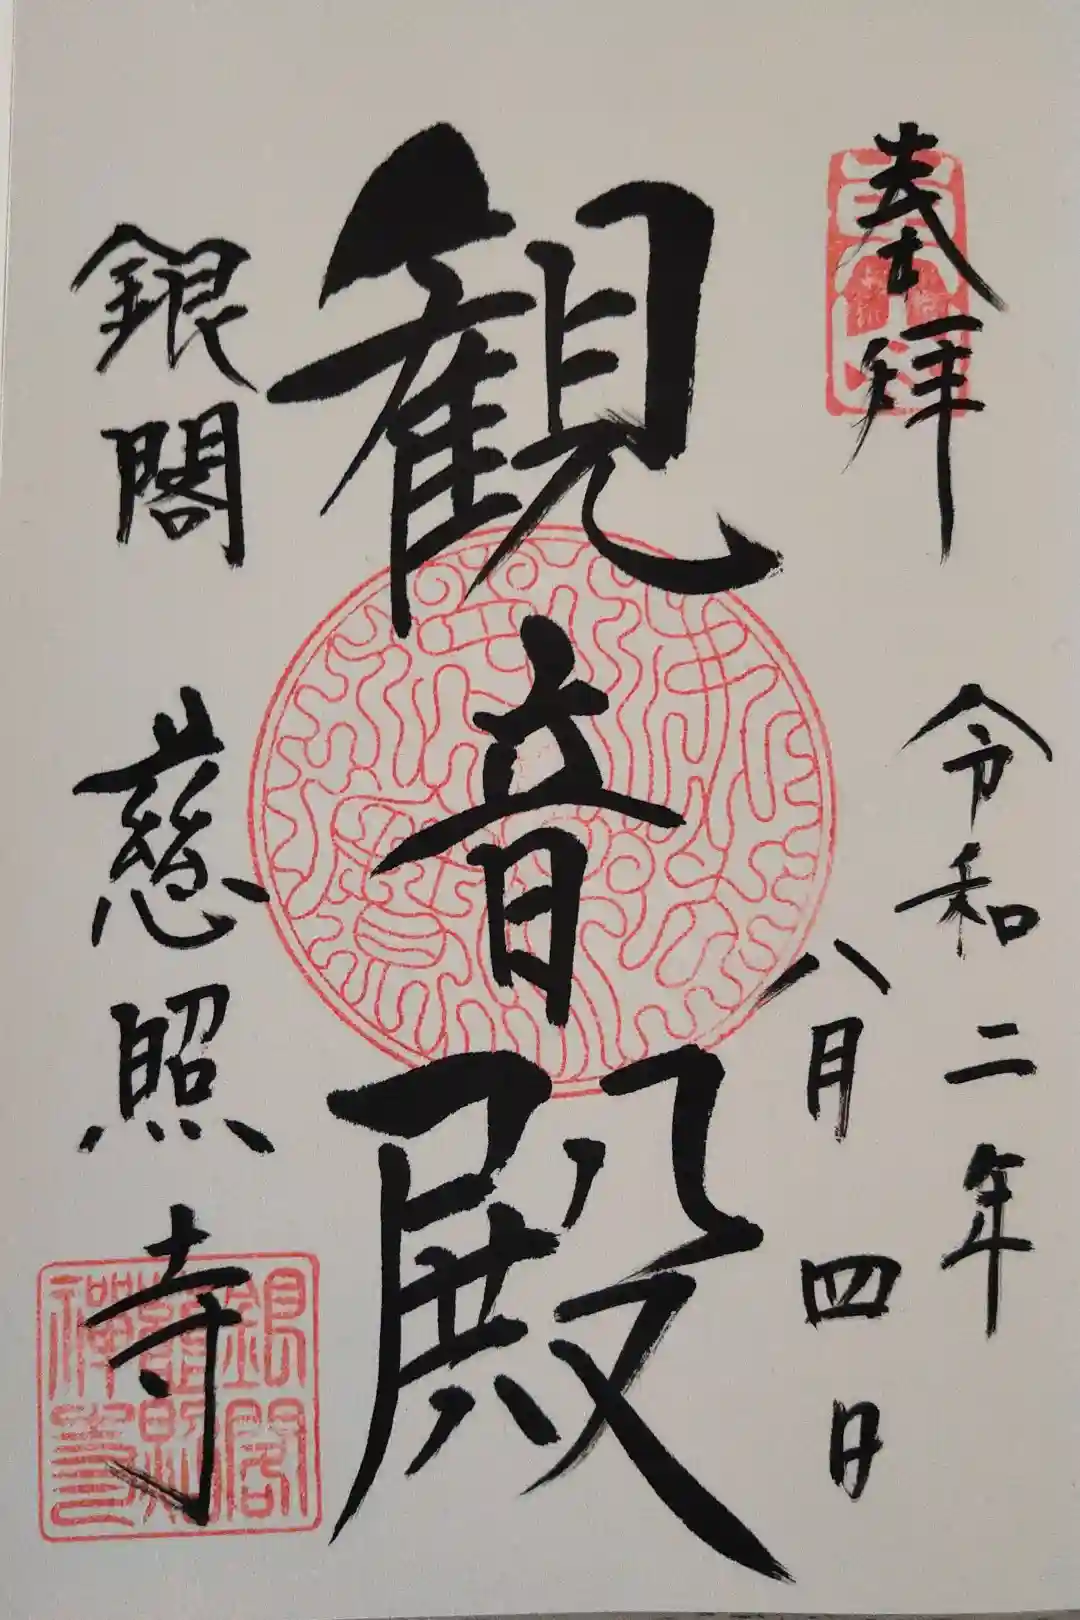 奉拝
令和二年
八月四日
観音殿
銀閣 慈照寺
銀閣
慈照
禅寺